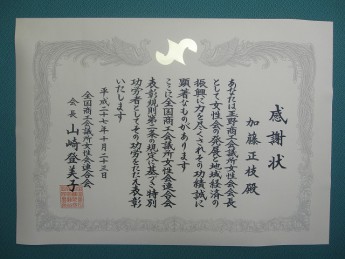 感謝状
加藤正枝殿
あなたは玉野商工会議所女性会会長
として女性会の発展と地域経済の
振興に力を尽くされその功績誠に
顕著なものがあります
ここに全国商工会議所女性会連合会
表彰規則第二条の規定に基づき特別
功労者としてその功労をたたえ表彰
いたします
平成二十七年十月二十三日
全国商工会議所女性会連合会
会長 山崎登美子